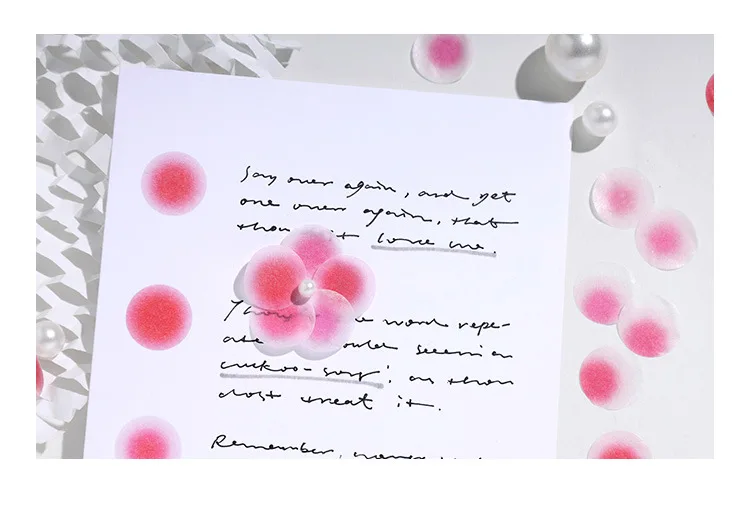 Say over again, and yet
one over again, that
thou love me.
word repe-
ate should seem an
cuckoo-song', as thou
dost treat it.
Remember, never